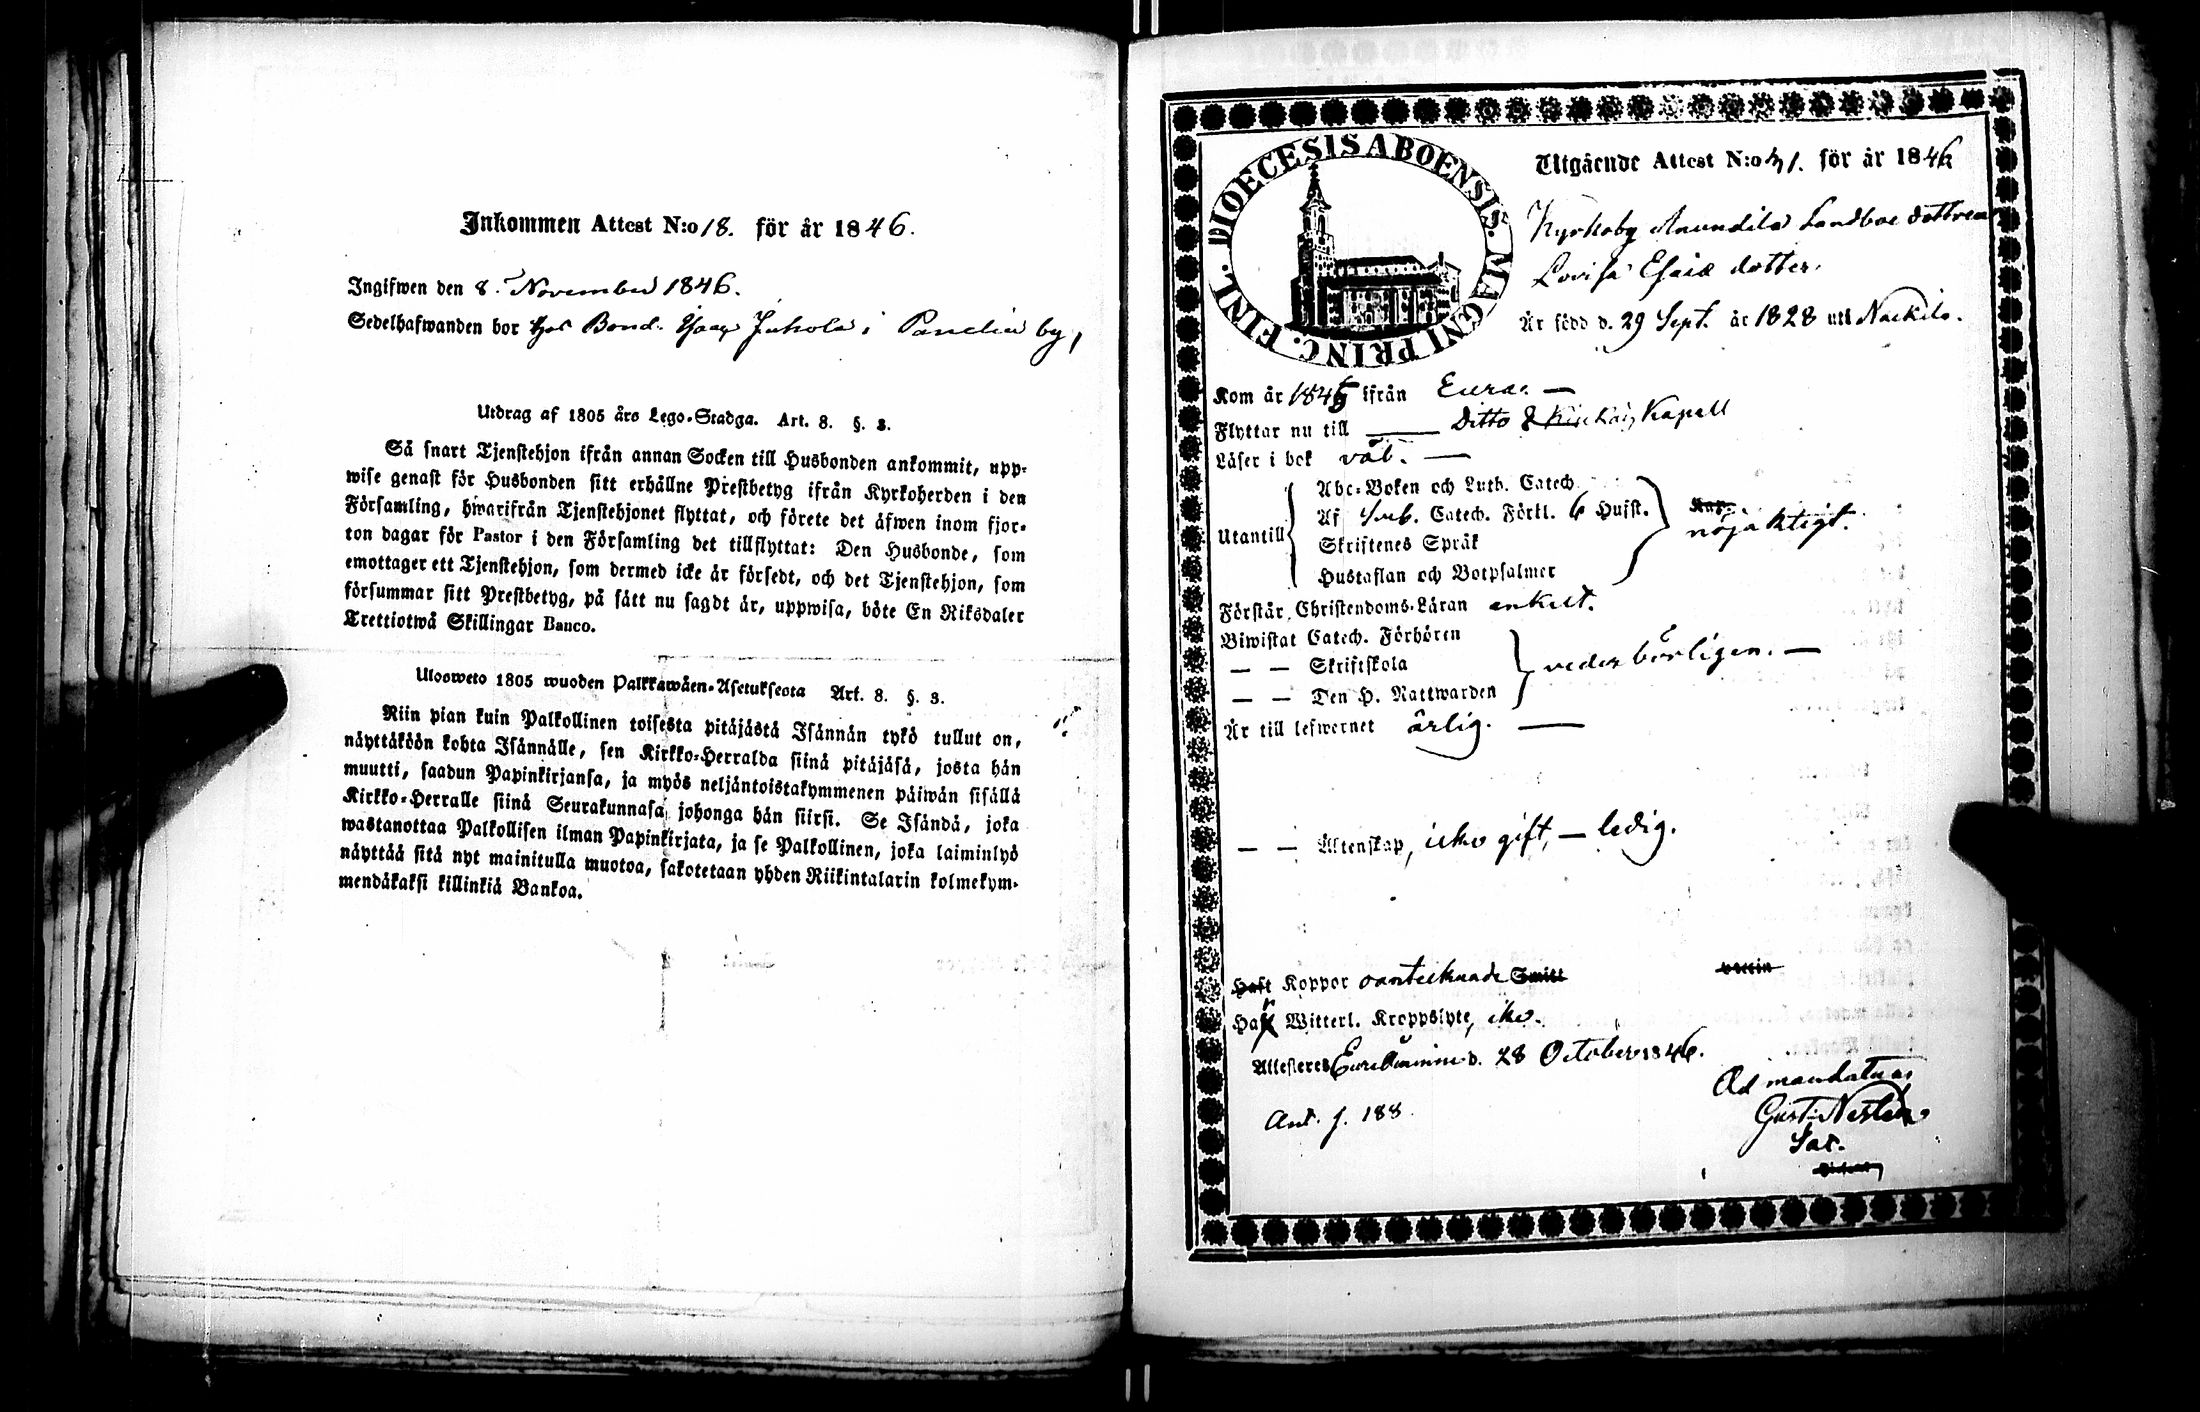 Inkommen Attest N:o 18. för år 1846.
Ingifwen den 8. November 1846.
Sedelhafwanden bor hos Bond. Isaac Jukola i Panelia by,
Utdrag af 1805 års Lego-Stadga. Art. 8. §. 3.
Så snart Tjenstehjon ifrån annan Socken till Husbonden ankommit, upp-
wise genast för Husbonden sitt erhållne Prestbetyg ifrån Kyrkoherden i den
Församling, hwarifrån Tjenstehjonet flyttat, och förete det äfwen inom fjor-
ton dagar för Pastor i den Församling det tillflyttat: Den Husbonde, som
emottager ett Tjenstehjon, som dermed icke är försedt, och det Tjenstehjon, som
försummar sitt Prestbetyg, på sätt nu sagdt är, uppwisa, böte En Riksdaler
Trettiotwå Skillingar Banco.
Ulosweto 1805 wuoden Palkkawäen-Asetuksesta Art. 8. §. 3.
Niin pian kuin Palkollinen toisesta pitäjästä Isännän tykö tullut on,
näyttäköön kohta Isännälle, sen Kirkko-Herralda siinä pitäjäsä, josta hän
muutti, saadun Papinkirjansa, ja myös neljäntoistakymmenen päiwän sisällä
Kirkko-Herralle siinä Seurakunnasa, johonga hän siirsi. Se Isändä, joka
wastanottaa Palkollisen ilman Papinkirjata, ja se Palkollinen, joka laiminlyö
näyttää sitä nyt mainitulla muotoa, sakotetaan yhden Riikintalarin kolmekym-
mendäkaksi killinkiä Bankoa.
DIOECESIS ABOENSIS. MAGNI PRINC. FINL.
Utgående Attest N:o 41. för år 1846
Kyrkoby Anundila Landboe dottren
Lovisa Esaiæ dotter.
Är född d. 29 Sept. år 1828 uti Nackila.
Kom år 1845 ifrån Eura. —
Flyttar nu till — Ditto & Kiukais Kapell
Läser i bok väl. —
Abc-Boken och Luth. Catech.
Af Catech. Förkl. 6 Hufst.
Utantill
Skriftenes Språk
nöjaktigt.
Hustaflan och Botpsalmer
Förstår Christendoms-Läran enkelt.
Biwistat Catech. Förhören
— — Skriftskola
vederbörligen. —
— — Den H. Nattwarden
Är till lefwernet ärlig. —
— — Äktenskap, icke gift, — ledig.
Haft Koppor oantecknade Smitt vaccin
Har Witterl. Kroppslyte, icke.
Attesteres Eura d. 28 October 1846.
Ad mandatum
Gust. Neslen
Sac.
Ant. f. 188.